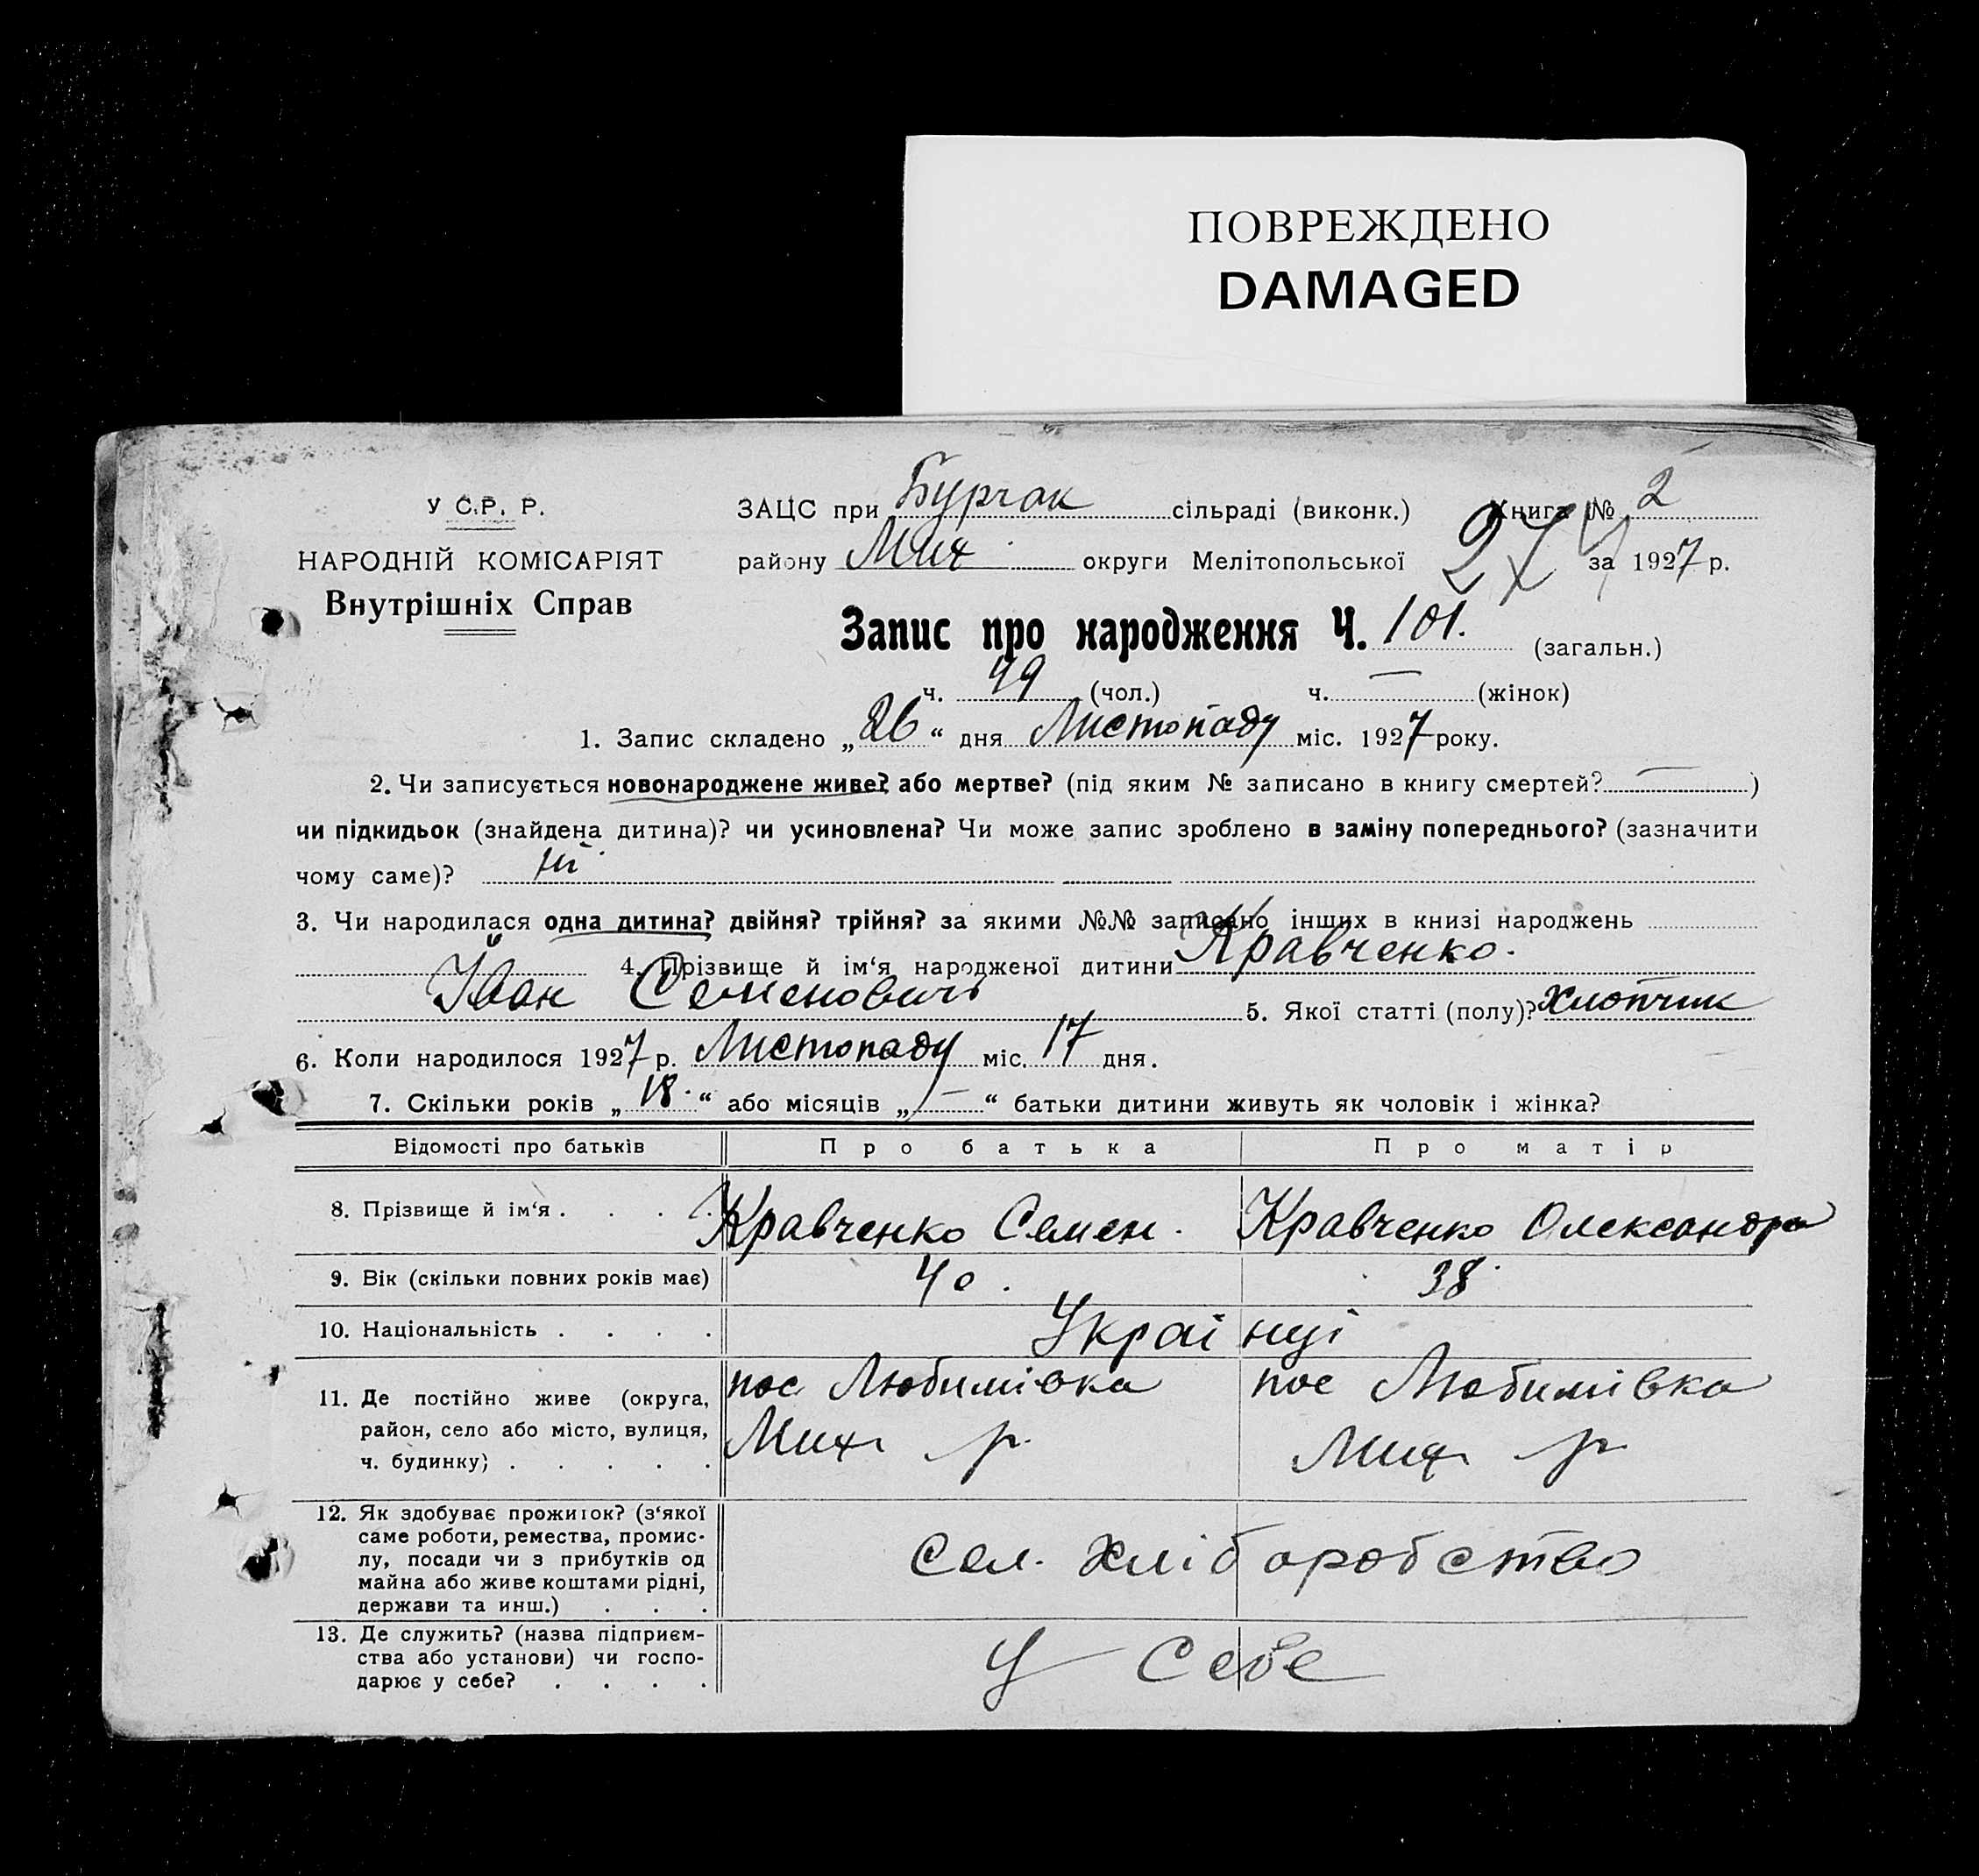 ПОВРЕЖДЕНО
DAMAGED
У С.Р. Р.
НАРОДНІЙ КОМІСАРІЯТ
Внутрішніх Справ
ЗАЦС при Бурчак сільраді (виконк.) Книга № 2
району Мих округи Мелітопольської 27 за 1927 р.
Запис про народження Ч. 101. (загальн.)
ч. 49 (чол.) ч. — (жінок)
1. Запис складено „26“ дня Листопаду міс. 1927 року.
2. Чи записується новонароджене живе? або мертве? (під яким № записано в книгу смертей? — )
чи підкидьок (знайдена дитина)? чи усиновлена? Чи може запис зроблено в заміну попереднього? (зазначити
чому саме)? ні
3. Чи народилася одна дитина? двійня? трійня? за якими №№ записано інших в книзі народжень
4. Прізвище й ім‘я народженої дитини Кравченко.
Іван Семенович 5. Якої статті (полу)? хлопчик
6. Коли народилося 1927 р. Листопаду міс. 17 дня.
7. Скільки років „18.“ або місяців „—“ батьки дитини живуть як чоловік і жінка?
Відомості про батьків Про батька Про матір
8. Прізвище й ім‘я . . . . Кравченко Семен. Кравченко Олександра
9. Вік (скільки повних років має) 40. 38
10. Національність . . . . Украінці
11. Де постійно живе (округа, пос Любимівка пос Любимівка
район, село або місто, вулиця, Мих р. Мих р
ч. будинку) . . . . .
12. Як здобуває прожиток? (з‘якої
саме роботи, ремества, промис-
лу, посади чи з прибутків од Сел. хліборобство
майна або живе коштами рідні,
держави та инш.) . . .
13. Де служить? (назва підприєм-
ства або установи) чи госпо- У себе
дарює у себе? . . . .